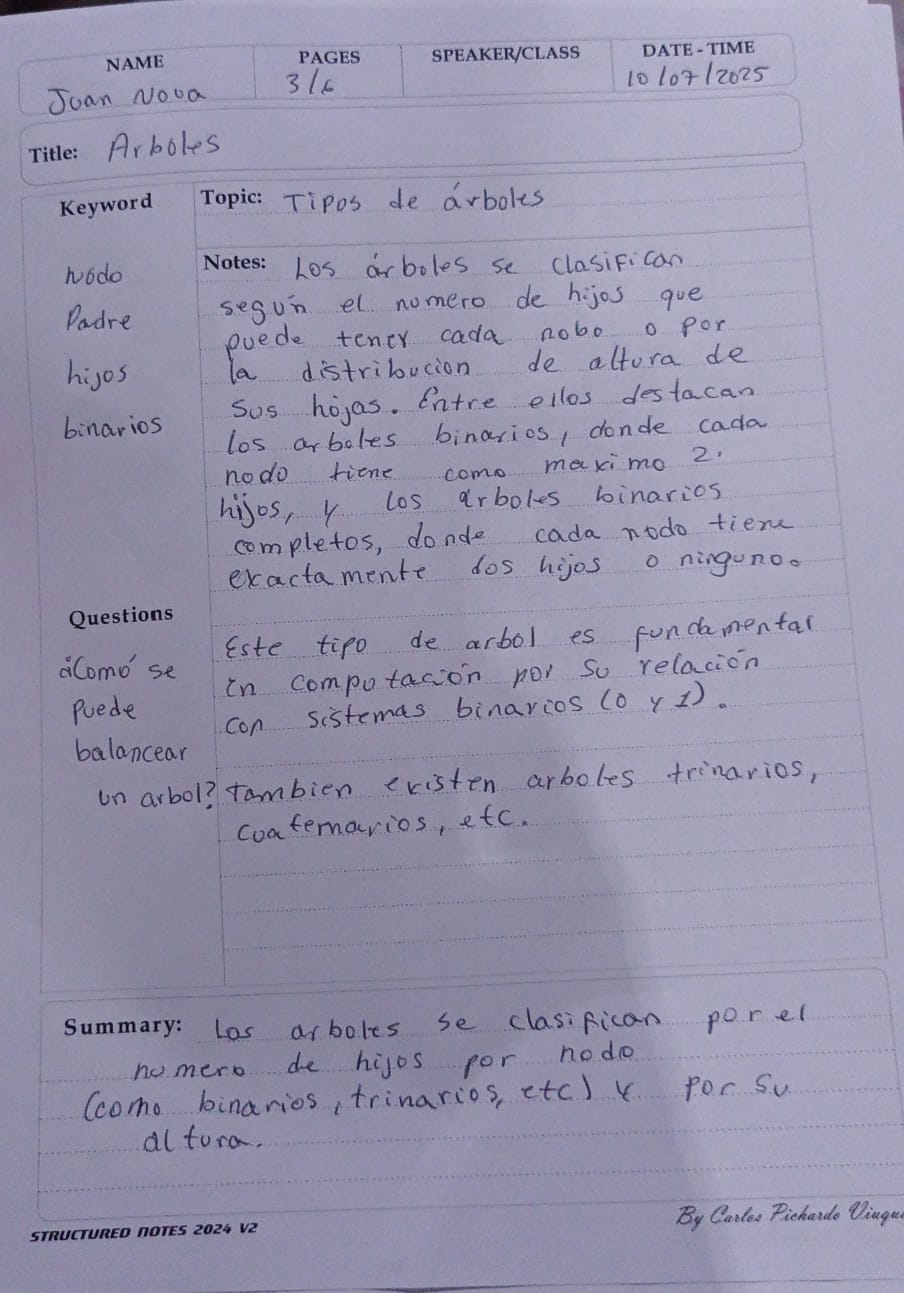 NAME PAGES SPEAKER/CLASS DATE - TIME
Juan Nova 3/6 10/07/2025
Title: Arboles
Keyword
Nodo
Padre
hijos
binarios
Topic: Tipos de árboles
Notes: Los árboles se clasifican
según el numero de hijos que
puede tener cada nobo o por
la distribucion de altura de
sus hojas. Entre ellos destacan
los arboles binarios, donde cada
nodo tiene como maximo 2.
hijos, y los arboles binarios
completos, donde cada nodo tiene
exactamente dos hijos o ninguno.
Este tipo de arbol es fundamental
en computación por su relación
con sistemas binarios (0 y 1).
Tambien existen arboles trinarios,
cuaternarios, etc.
Questions
¿Como se
puede
balancear
un arbol?
Summary: Los arboles se clasifican por el
numero de hijos por nodo
(como binarios, trinarios, etc) y por su
altura.
STRUCTURED NOTES 2024 V2
By Carlos Pichardo Viuque